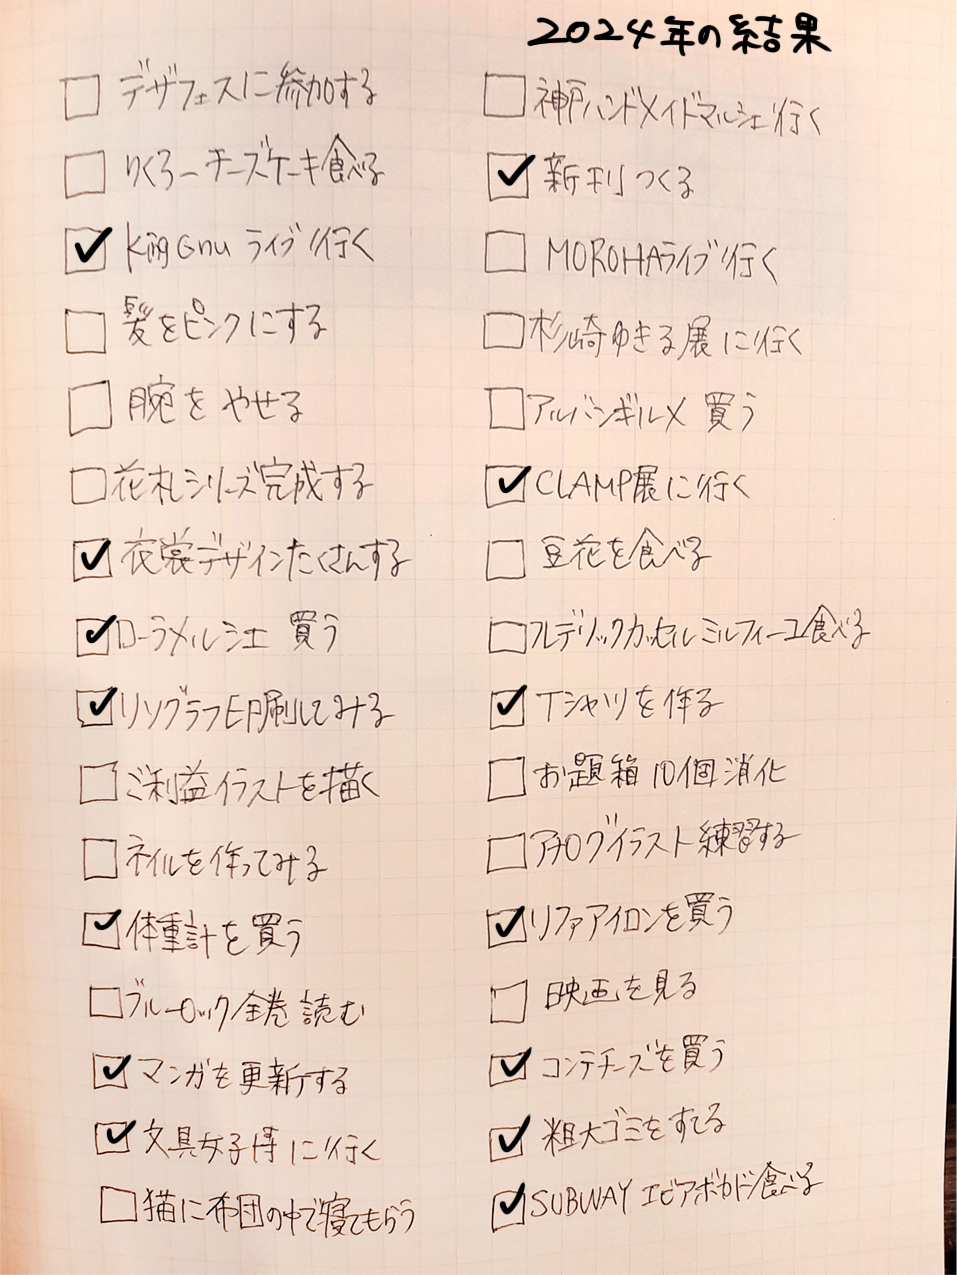 2024年の結果
デザフェスに参加する
りくろーチーズケーキ食べる
King Gnu ライブ行く
髪をピンクにする
腕をやせる
花札シリーズ完成する
衣裳デザインたくさんする
ローラメルシエ 買う
リソグラフ印刷してみる
ご利益イラストを描く
ネイルを作ってみる
体重計を買う
ブルーロック全巻読む
マンガを更新する
文具女子博に行く
猫に布団の中で寝てもらう
神戸ハンドメイドマルシェ行く
新刊つくる
MOROHAライブ行く
杉崎ゆきる展に行く
アルバンギルメ 買う
CLAMP展に行く
豆花を食べる
フレデリックカッセルミルフィーユ食べる
Tシャツを作る
お題箱10個消化
アナログイラスト練習する
リファアイロンを買う
映画を見る
コンテチーズを買う
粗大ゴミをすてる
SUBWAY エビアボカド食べる